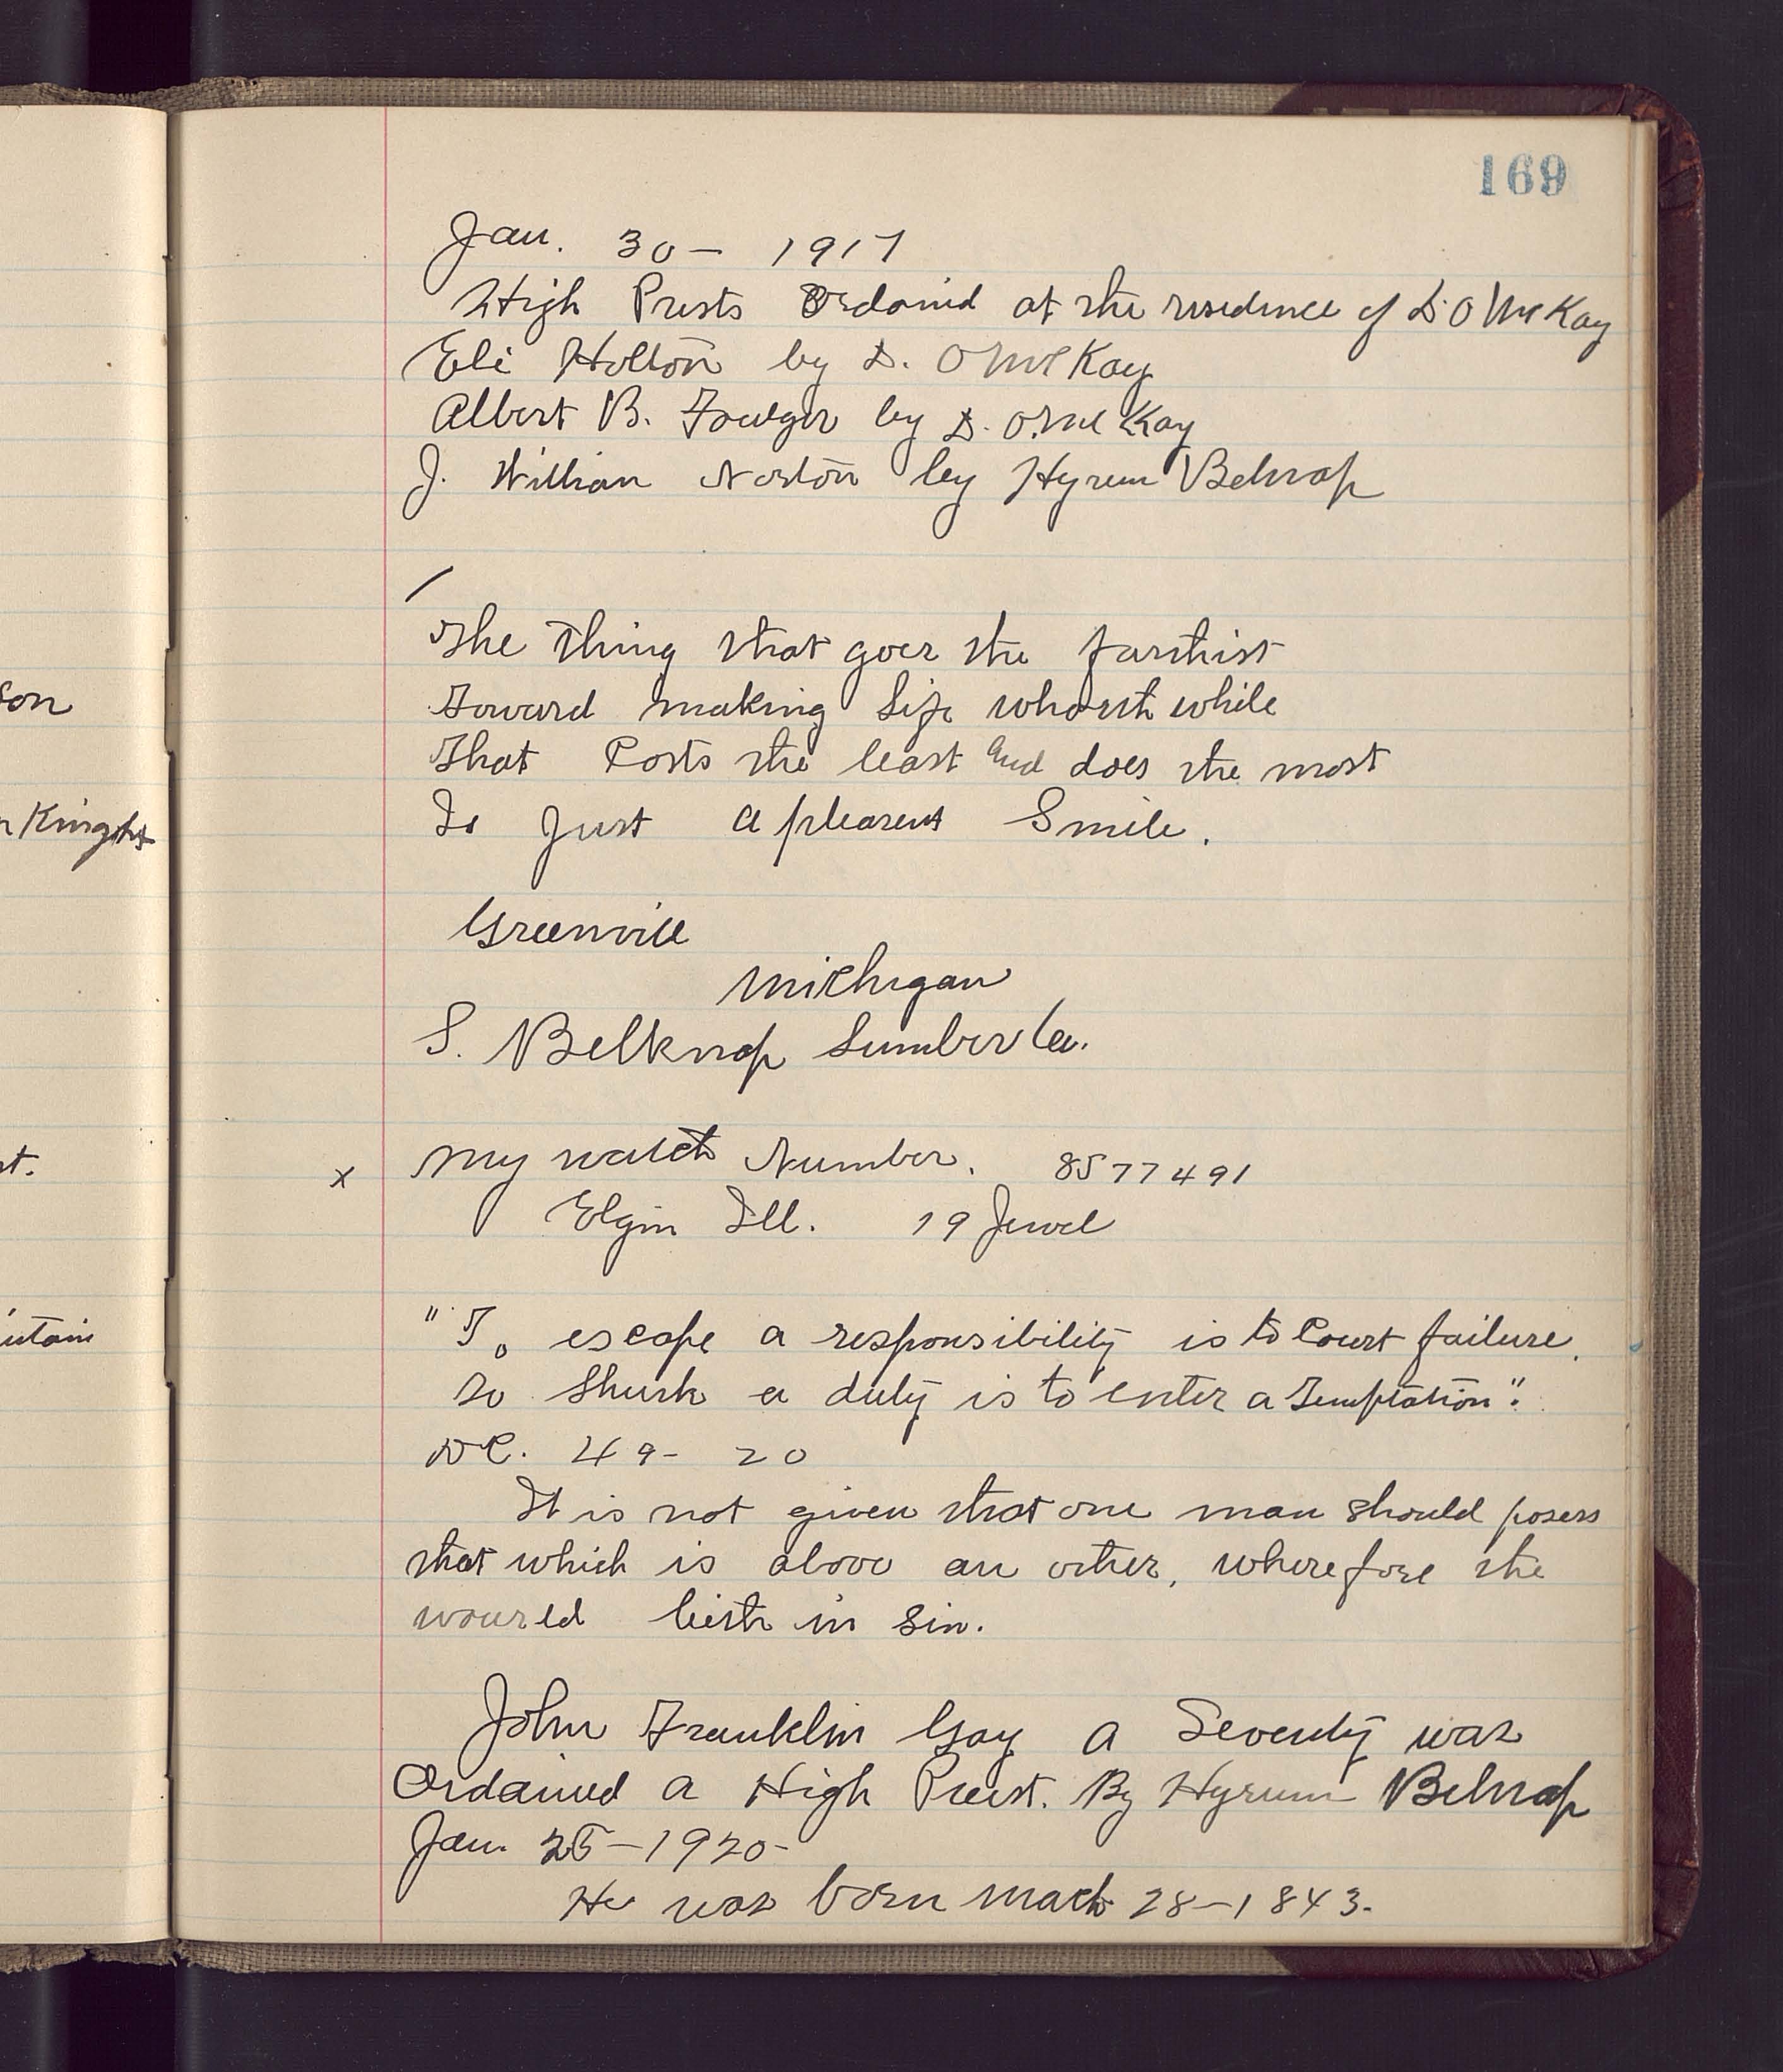 169
Jan. 30 - 1917
High Prests Ordaind at the residence of D. O McKay
Eli Holton by D. O McKay
Albert B. Foulger by D. O. McKay
J. William Norton by Hyrum Belnap
The thing that goes the farthist
Toward making life whorth while
That Costs the least and does the most
Is Just a pleasent Smile.
Greenville
Michigan
S. Belknap Lumber Co.
x My watch Number. 8577491
Elgin Ill. 19 Jewel
"To escape a responsibility is to Court failure.
To Shurk a duty is to enter a Temptation".
DC. 49 - 20
It is not given that one man should posess
that which is above an other, wherefore the
wourld lieth in sin.
John Franklin Gay a Seventy was
Ordained a High Preist. By Hyrum Belnap
Jan. 25 - 1920 -
He was born March 28 - 1843.
son
Kinghts
st.
utain